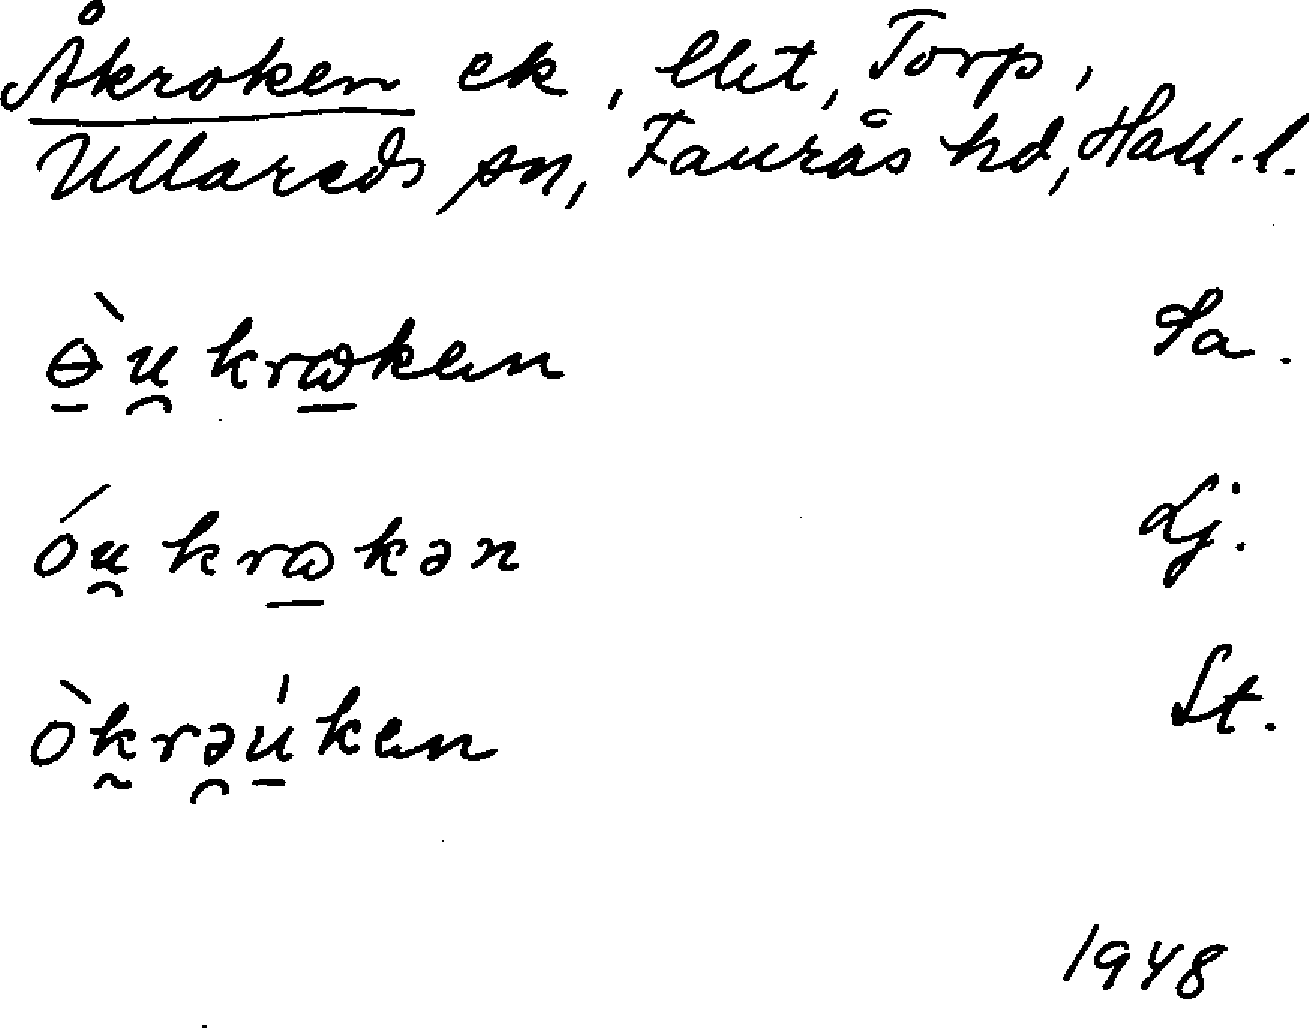 Åkroken ek, Ubt, Torp,
Ullareds sn, Faurås hd, Hall. l.
ɵ̲̀u̯krꞷ̲ken Sa.
óu̯krꞷ̲kən Lj.
òk̰rə̯u̲̍ken St.
1948